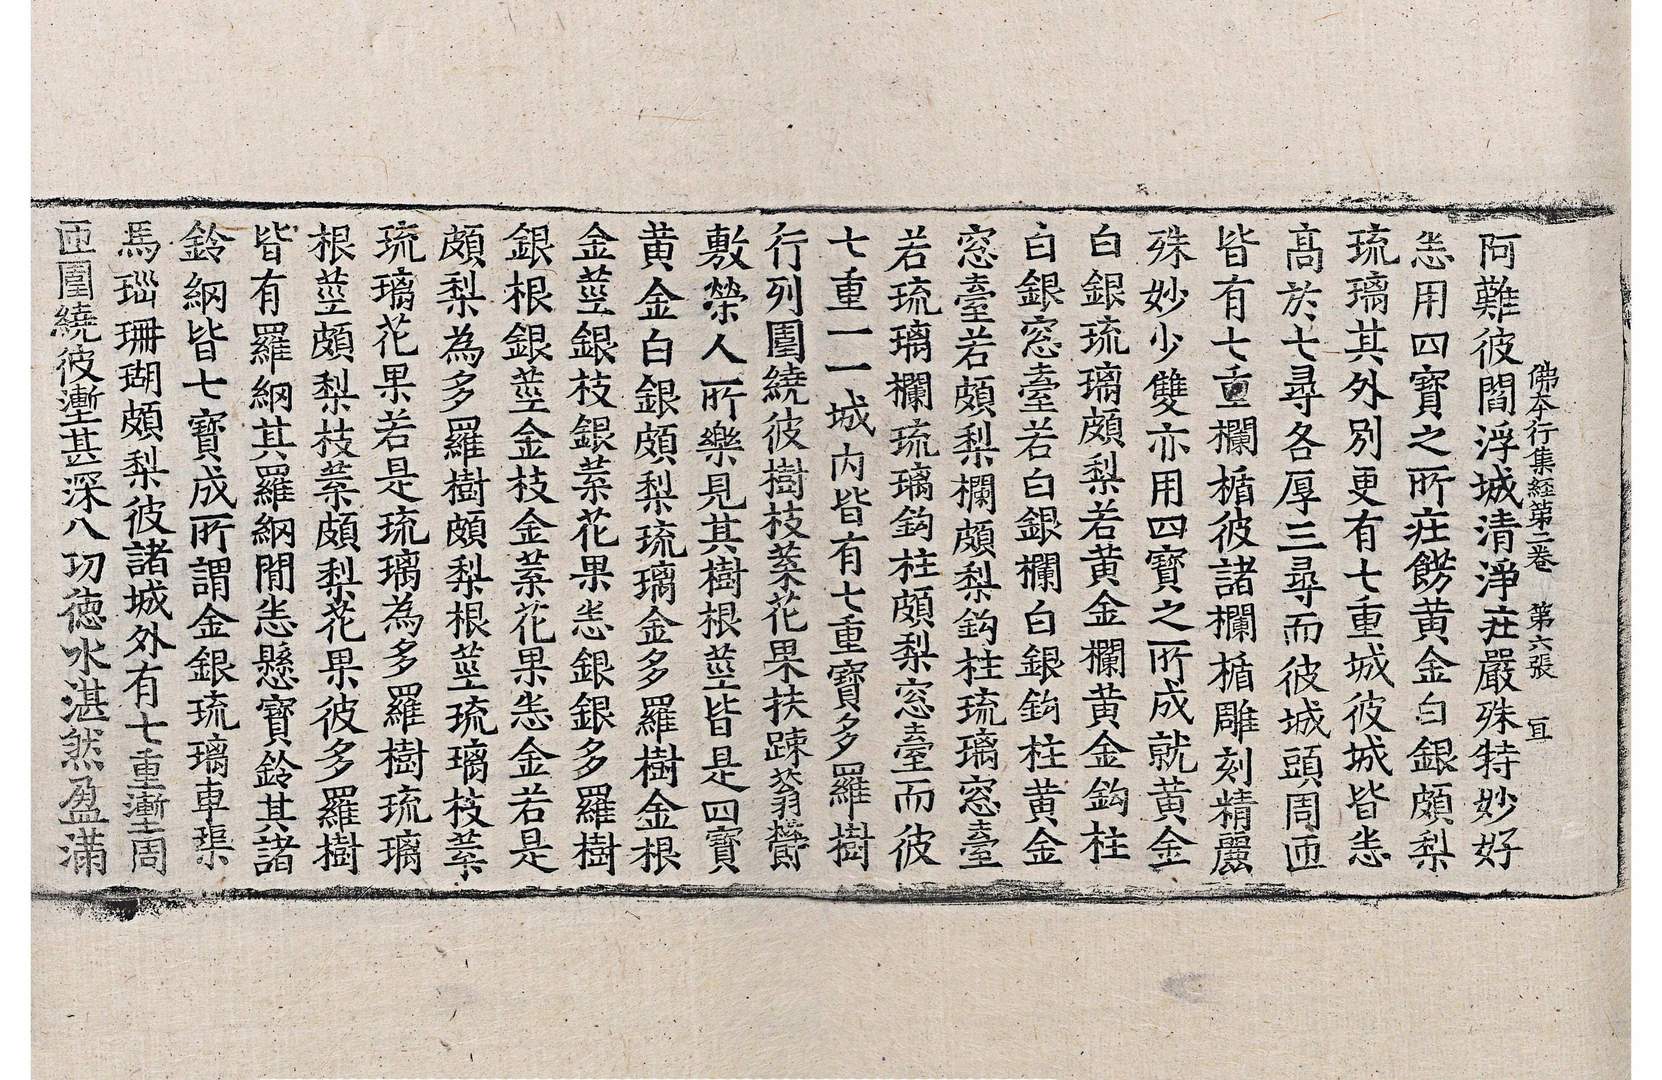 佛本行集經第二卷　第六張　亘
阿難彼閻浮城清淨莊嚴殊特妙好
悉用四寶之所莊飾黃金白銀頗梨
琉璃其外別更有七重城彼城皆悉
高於七尋各厚三尋而彼城頭周匝
皆有七重欄楯彼諸欄楯雕刻精麗
殊妙少雙亦用四寶之所成就黃金
白銀琉璃頗梨若黃金欄黃金鈎柱
白銀窓臺若白銀欄白銀鈎柱黃金
窓臺若頗梨欄頗梨鈎柱琉璃窓臺
若琉璃欄琉璃鈎柱頗梨窓臺而彼
七重一一城内皆有七重寶多羅樹
行列圍繞彼樹枝葉花果扶踈蓊欝
敷榮人所樂見其樹根莖皆是四寶
黃金白銀頗梨琉璃金多羅樹金根
金莖銀枝銀葉花果悉銀銀多羅樹
銀根銀莖金枝金葉花果悉金若是
頗梨為多羅樹頗梨根莖琉璃枝葉
琉璃花果若是琉璃為多羅樹琉璃
根莖頗梨枝葉頗梨花果彼多羅樹
皆有羅網其羅網間悉懸寶鈴其諸
鈴網皆七寶成所謂金銀琉璃車璖
馬瑙珊瑚頗梨彼諸城外有七重塹周
匝圍繞彼塹甚深八功德水湛然盈滿